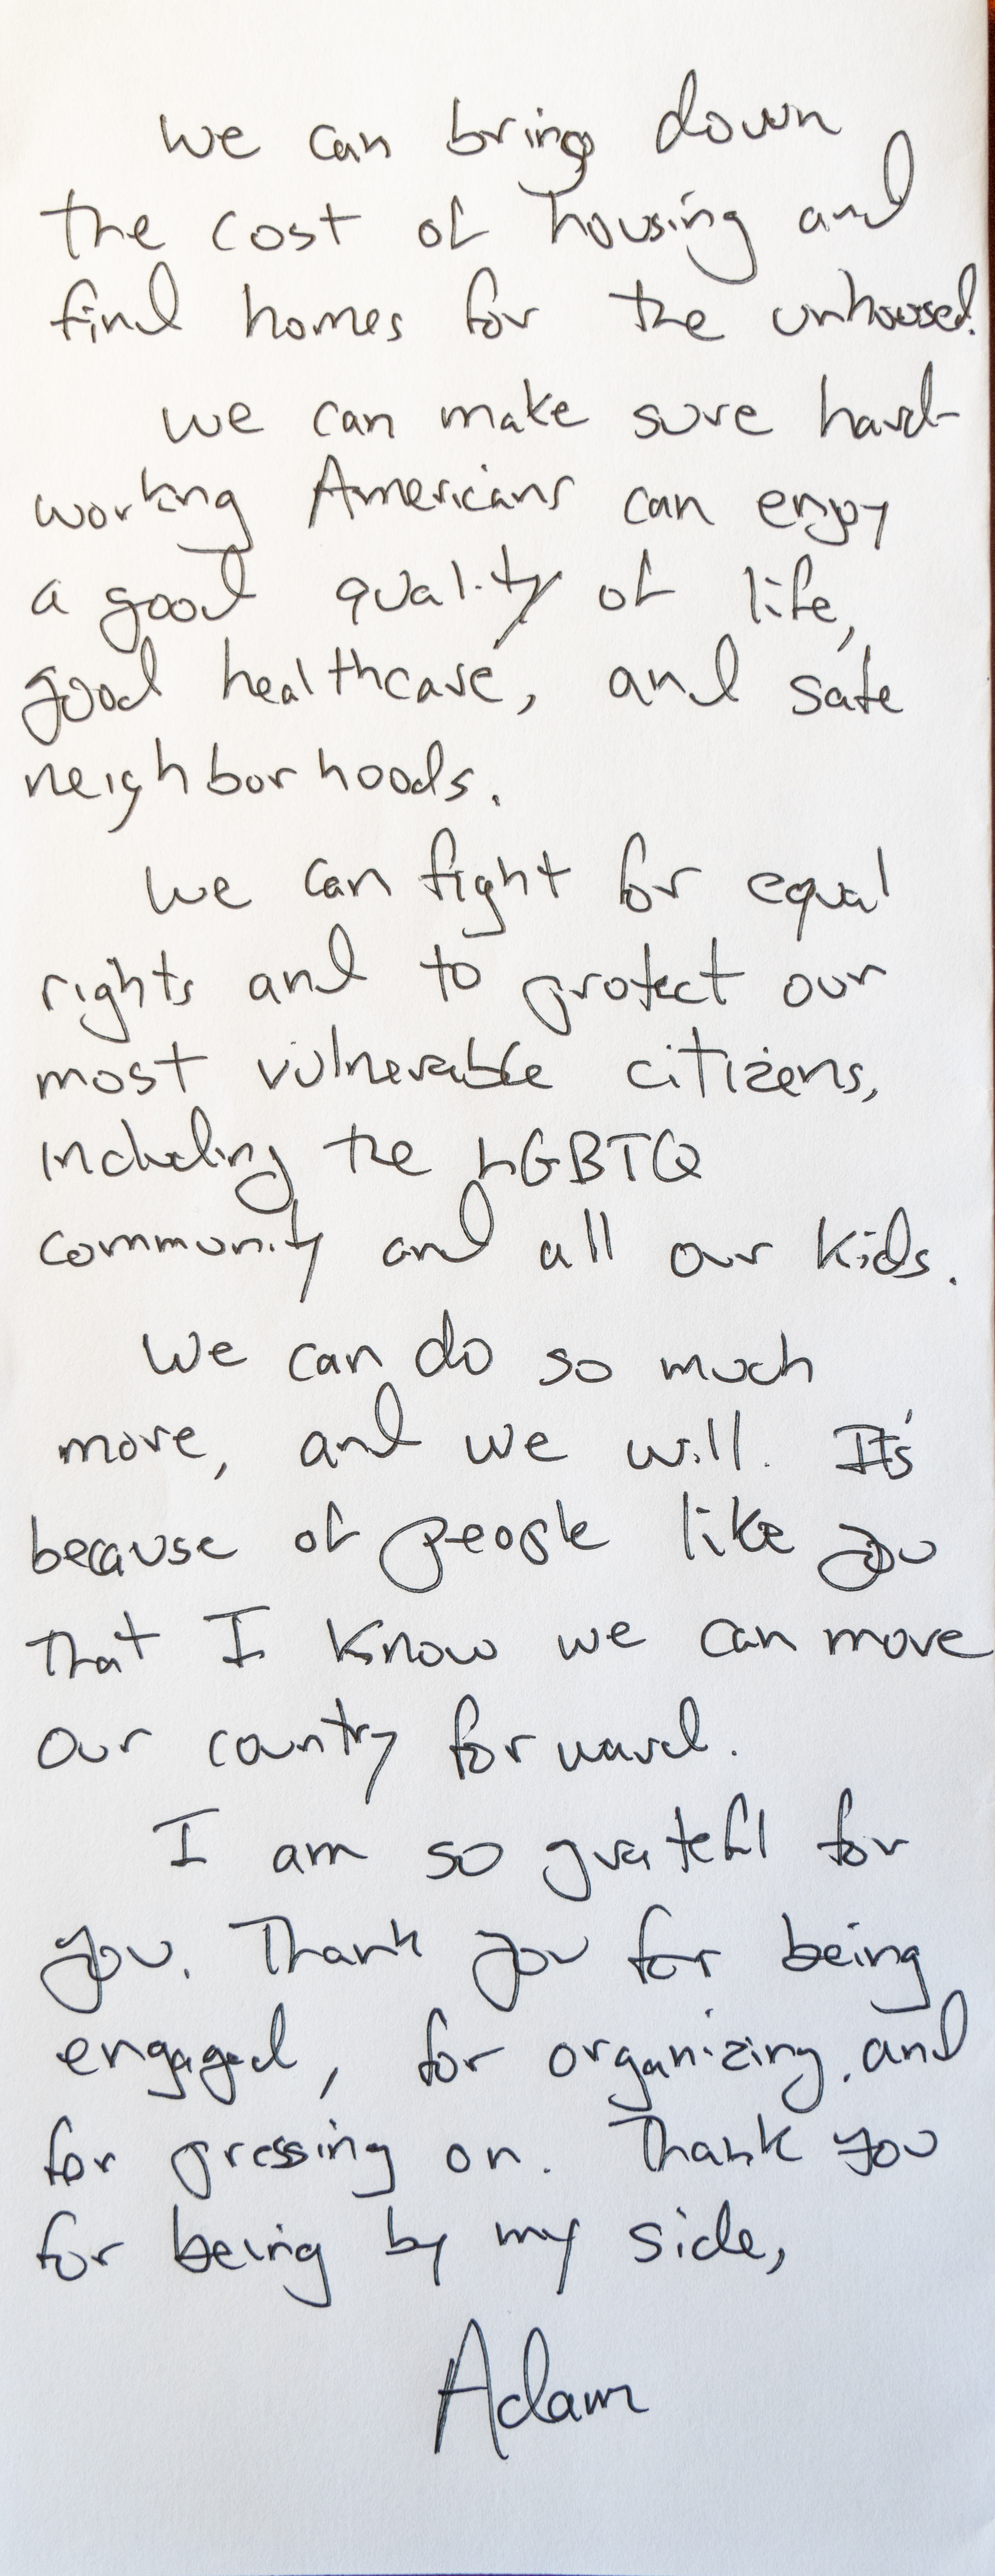 We can bring down
the cost of housing and
find homes for the unhoused.
We can make sure hard-
working Americans can enjoy
a good quality of life,
good healthcare, and safe
neighborhoods.
We can fight for equal
rights and to protect our
most vulnerable citizens,
including the LGBTQ
community and all our kids.
We can do so much
more, and we will. It's
because of people like you
that I know we can move
our country forward.
I am so grateful for
you. Thank you for being
engaged, for organizing, and
for pressing on. Thank you
for being by my side,
Adam